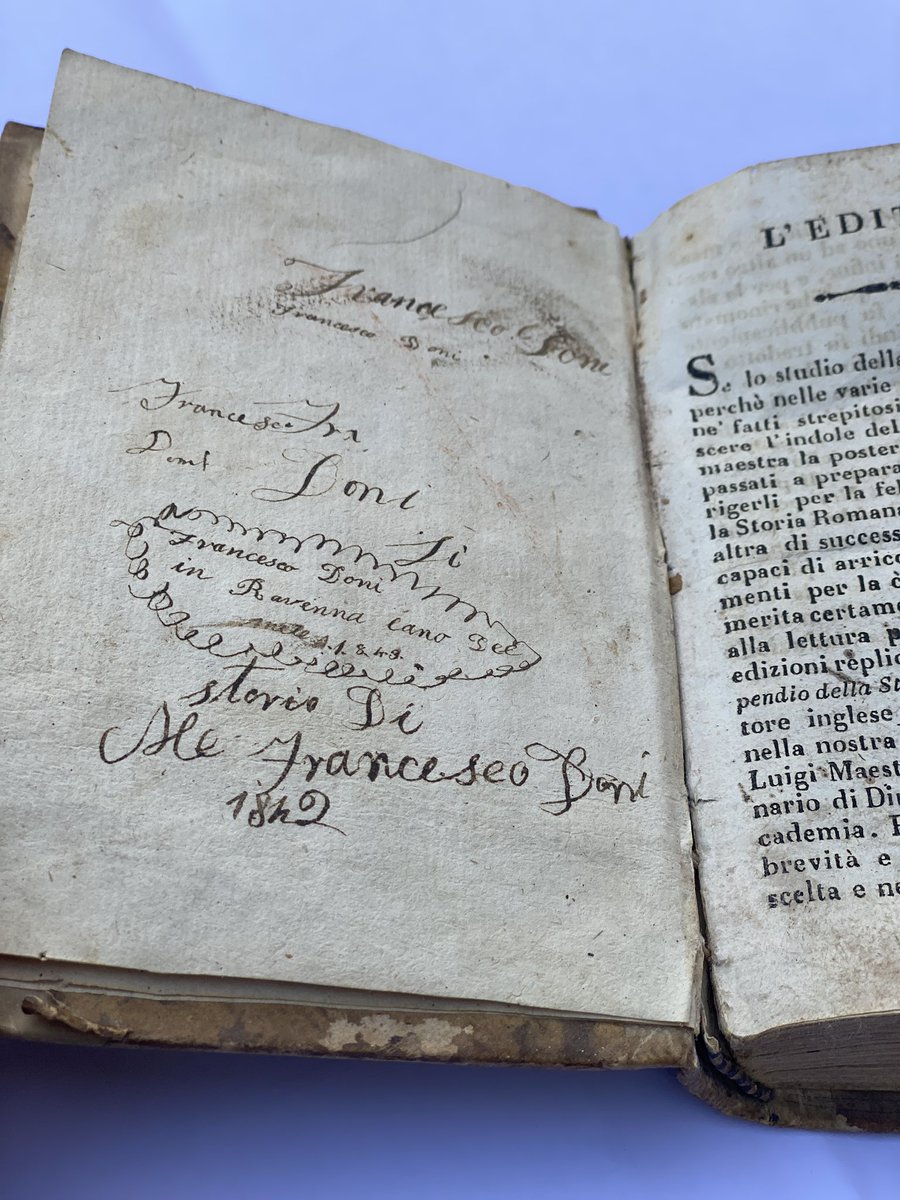 Francesco Doni
Francesco Doni
Francesco Fra
Doni
Doni
Di
Francesco Doni
in Ravenna
Dee
storio Di
Me Francesco Doni
1842
L'EDIT
Se lo studio della
perchè nelle varie
ne' fatti strepitosi
scere l'indole del
maestra la poster
passati a prepara
rigerli per la fel
la Storia Romana
altra di success
capaci di arricc
menti per la c
merita certame
alla lettura p
edizioni replic
pendio della St
tore inglese
nella nostra
Luigi Maest
nario di Di
cademia.
brevità e
scelta e ne